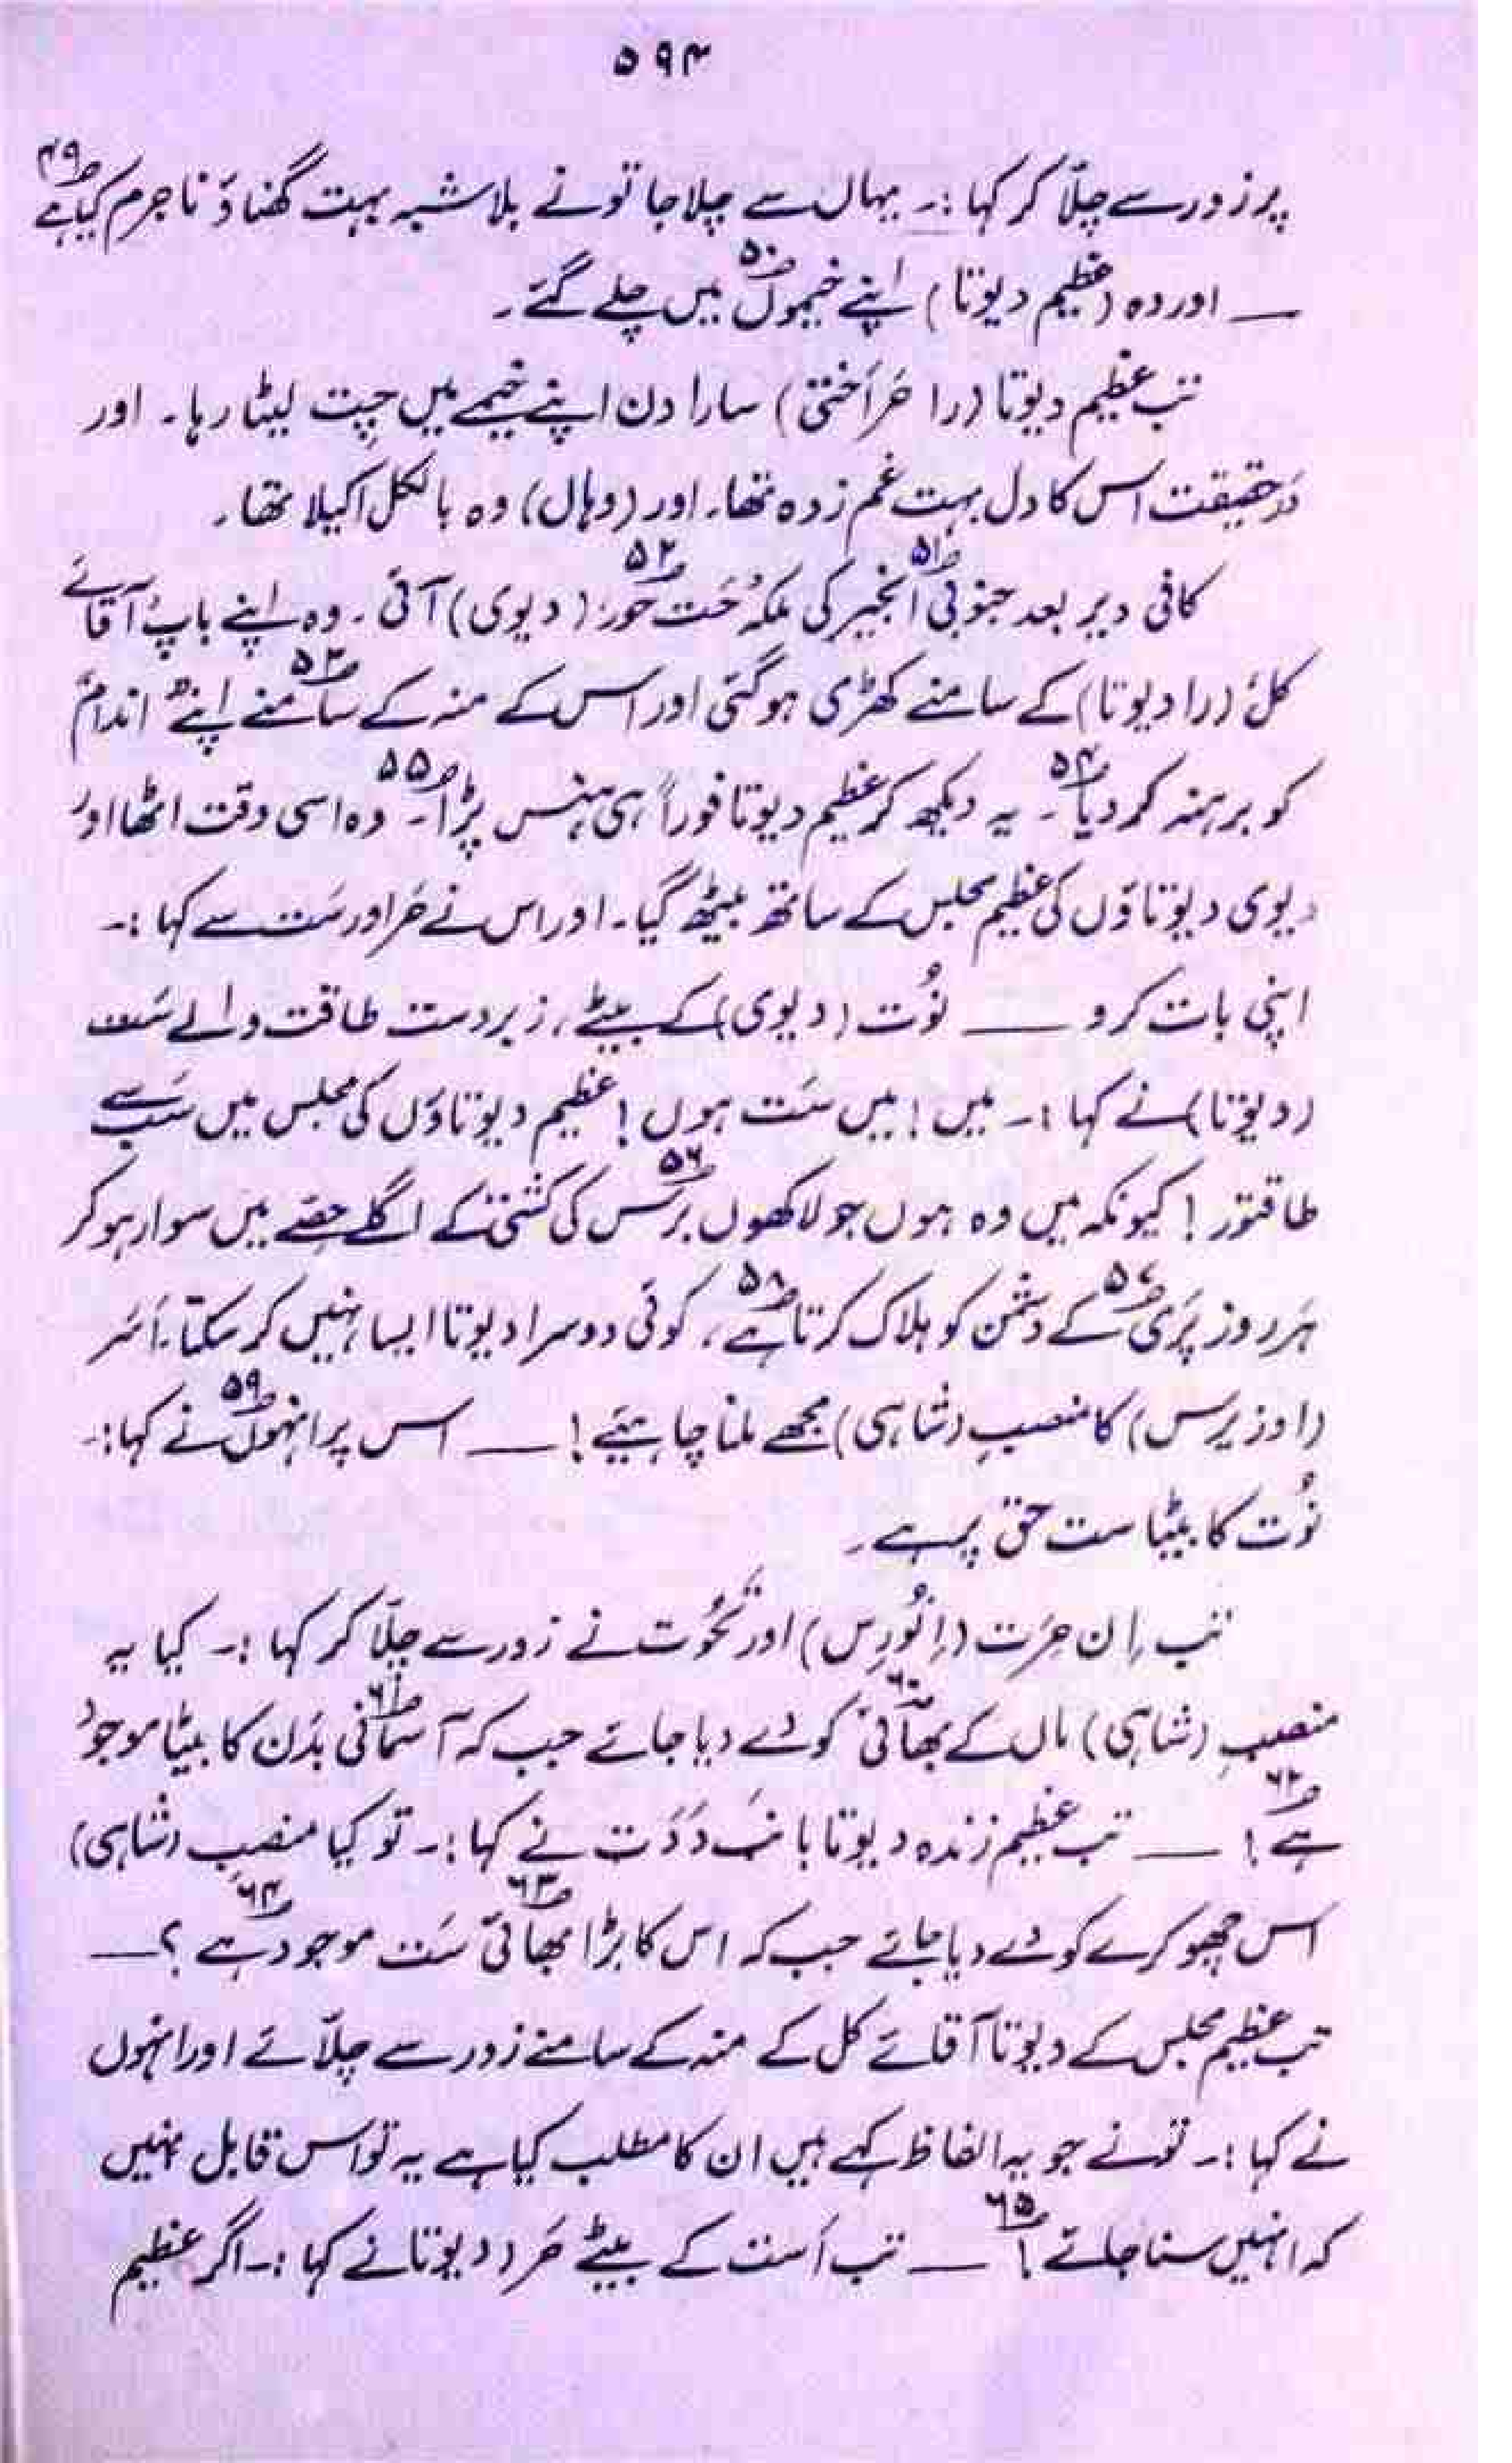 ۵۹۴
پر زور سے چلّا کر کہا :۔ یہاں سے چلا جا تو نے بلاشبہ بہت گھناؤنا جرم کیا ہے ۴۹
— اور وہ (عظیم دیوتا) اپنے خیموں ۵۰ میں چلے گئے ۔
تب عظیم دیوتا (را حَراَختی) سارا دن اپنے خیمے میں چِت لیٹا رہا ۔ اور
دَرحقیقت اس کا دل بہت غم زدہ تھا۔ اور (وہاں) وہ بالکل اکیلا تھا ۔
کافی دیر بعد جنوبی ۵۱ انجیر کی ملکہ حَت حَور ۵۲ (دیوی) آئی ۔ وہ اپنے باپ آقائے
کل (را دیوتا) کے سامنے کھڑی ہو گئی اور اس کے منہ کے سامنے ۵۳ اپنے اندام
کو برہنہ کر دیا ۵۴ ۔ یہ دیکھ کر عظیم دیوتا فوراً ہی ہنس پڑا ۵۵ ۔ وہ اسی وقت اٹھا اور
دیوی دیوتاؤں کی عظیم مجلس کے ساتھ بیٹھ گیا ۔ اور اس نے حَر اور سَت سے کہا :۔
اپنی بات کرو — نُوت (دیوی) کے بیٹے، زبردست طاقت والے سَت
(دیوتا) نے کہا :۔ میں ! میں سَت ہوں ! عظیم دیوتاؤں کی مجلس میں سَب سے
طاقتور ! کیونکہ میں وہ ہوں جو لاکھوں بَرس ۵۶ کی کشتی کے اگلے حصّے میں سوار ہو کر
ہَر روز پَری ۵۷ کے دشمن کو ہلاک کرتا ہے ۵۸ ، کوئی دوسرا دیوتا ایسا نہیں کر سکتا ۔ اَسَر
(اوزیرس) کا منصبِ (شاہی) مجھے ملنا چاہیئے ! — اس پر انہوں ۵۹ نے کہا :۔
نُوت کا بیٹا ست حق پر ہے ۔
تب اِن حِرَت (اِنُورِس) اور تَحُوت نے زور سے چلّا کر کہا :۔ کیا یہ
منصبِ (شاہی) ماں کے بھائی ۶۰ کو دے دیا جائے جب کہ آسمانی ۶۱ بدَن کا بیٹا موجود
ہے ۶۲ ! — تب عظیم زندہ دیوتا با نَب دَدَت نے کہا :۔ تو کیا منصبِ (شاہی)
اس چھوکرے کو دے دیا جائے جب کہ اس کا بڑا بھائی ۶۳ سَت موجود ہے ۶۴ ؟ —
تب عظیم مجلس کے دیوتا آقائے کل کے منہ کے سامنے زور سے چلّائے اور انہوں
نے کہا :۔ تو نے جو یہ الفاظ کہے ہیں ان کا مطلب کیا ہے یہ تو اس قابل نہیں
کہ انہیں سنا جائے ! ۶۵ — تب اَست کے بیٹے حَر (دیوتا نے کہا :۔ اگر عظیم